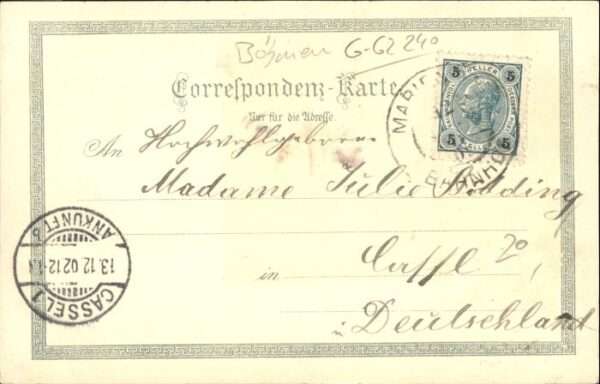 Böhmen G-G2 240
Correspondenz-Karte.
Nur für die Adresse.
5 HELLER 5
5 HELLER 5
BAHNHOF
An Hochwohlgeboren
Madame Julie
in Cassel
Deutschland
CASSEL 1
13.12.02 12-1
ANKUNFT